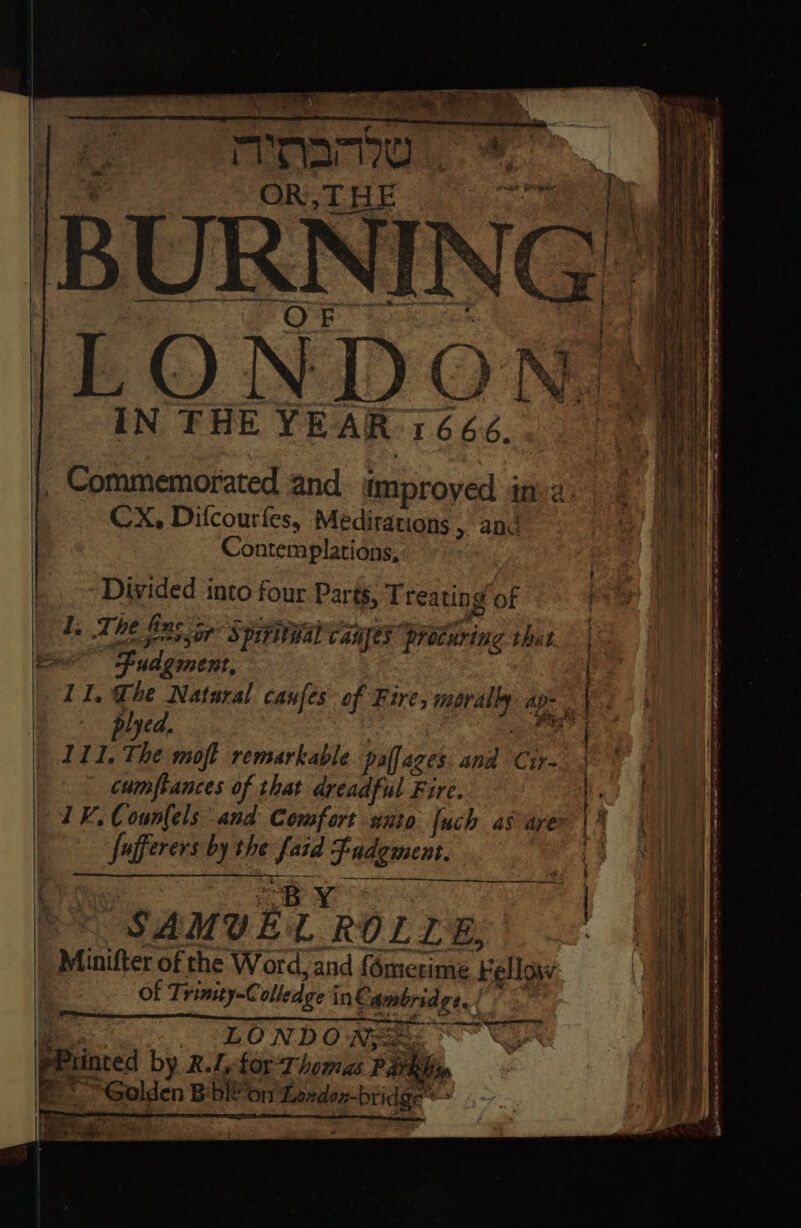 שלהבתיה
OR, THE
BURNING
OF
LONDON
IN THE YEAR 1666.
Commemorated and improved in a
CX. Difcourfes, Meditations, and
Contemplations,
Divided into four Parts, Treating of
I. The fins, or Spiritual caufes procuring that
Judgment,
II. The Natural caufes of Fire, morally ap-
plyed.
III. The moft remarkable paffages and Cir-
cumftances of that dreadful Fire.
IV. Counfels and Comfort unto fuch as are
fufferers by the faid Judgment.
BY
SAMVEL ROLLE,
Minifter of the Word, and fometime Fellow
of Trinity-Colledge in Cambridge.
LONDON,
Printed by R.I. for Thomas Parkhurst
Golden Bible on London-bridge